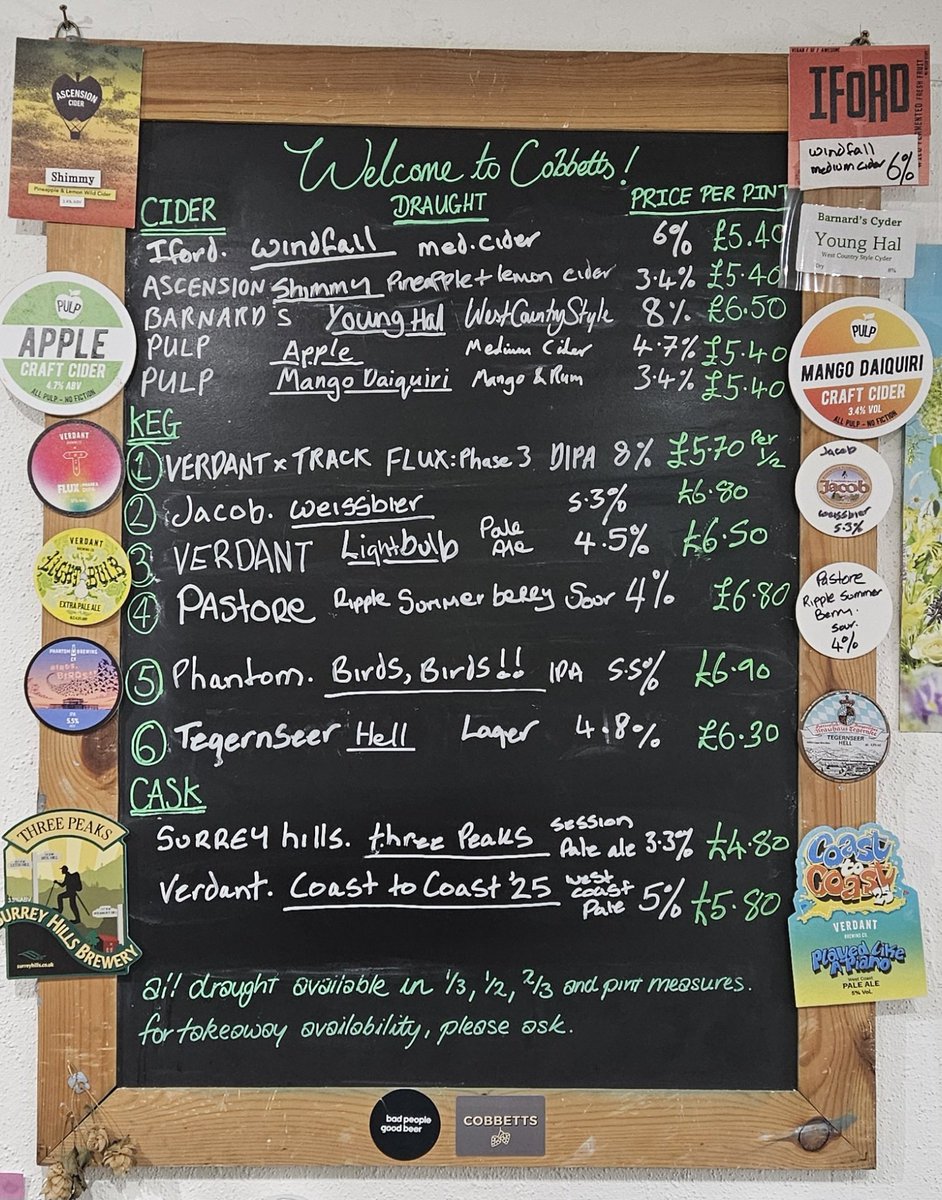 Welcome to Cobbetts!
CIDER DRAUGHT PRICE PER PINT
Iford. Windfall med.cider 6% £5.40
ASCENSION Shimmy Pineapple + lemon cider 3.4% £5.40
BARNARD'S Young Hal West Country Style 8% £6.50
PULP Apple Medium Cider 4.7% £5.40
PULP Mango Daiquiri Mango & Rum 3.4% £5.40
KEG
① VERDANT x TRACK FLUX: Phase 3 DIPA 8% £5.70 Per 1/2
② Jacob. Weissbier 5.3% £6.80
③ VERDANT Lightbulb Pale Ale 4.5% £6.50
④ PAStoRe Ripple Summer berry Sour 4% £6.80
⑤ Phantom. Birds, Birds!! IPA 5.5% £6.90
⑥ Tegernseer Hell Lager 4.8% £6.30
CASK
SURREY hills. three Peaks session Pale ale 3.3% £4.80
Verdant. Coast to Coast '25 west coast Pale 5% £5.80
all draught available in 1/3, 1/2, 2/3 and pint measures.
for takeaway availability, please ask.
ASCENSION
CIDER
Shimmy
Pineapple & Lemon Wild Cider
3.4% ABV
PULP
APPLE
CRAFT CIDER
4.7% ABV
ALL PULP - NO FICTION
VERDANT
FLUX
VERDANT
LIGHT BULB
EXTRA PALE ALE
PHANTOM BREWING
BIRDS, BIRDS!!
IPA
5.5%
THREE PEAKS
3.3% ABV
SURREY HILLS BREWERY
surreyhills.co.uk
VEGAN / GF / AWESOME
IFORD
WILD FERMENTED FRESH FRUIT
windfall
medium cider 6%
Barnard's Cyder
Young Hal
West Country Style Cyder
Dry 8%
PULP
MANGO DAIQUIRI
CRAFT CIDER
3.4% VOL
ALL PULP - NO FICTION
Jacob
Jacob
weissbier
5.3%
Pastore
Ripple Summer
Berry.
Sour.
4%
TEGERNSEER
HELL
Coast
to
Coast
25
VERDANT
BREWING CO.
Played Like
A Piano
West Coast
PALE ALE
5% VOL
bad people
good beer
COBBETTS